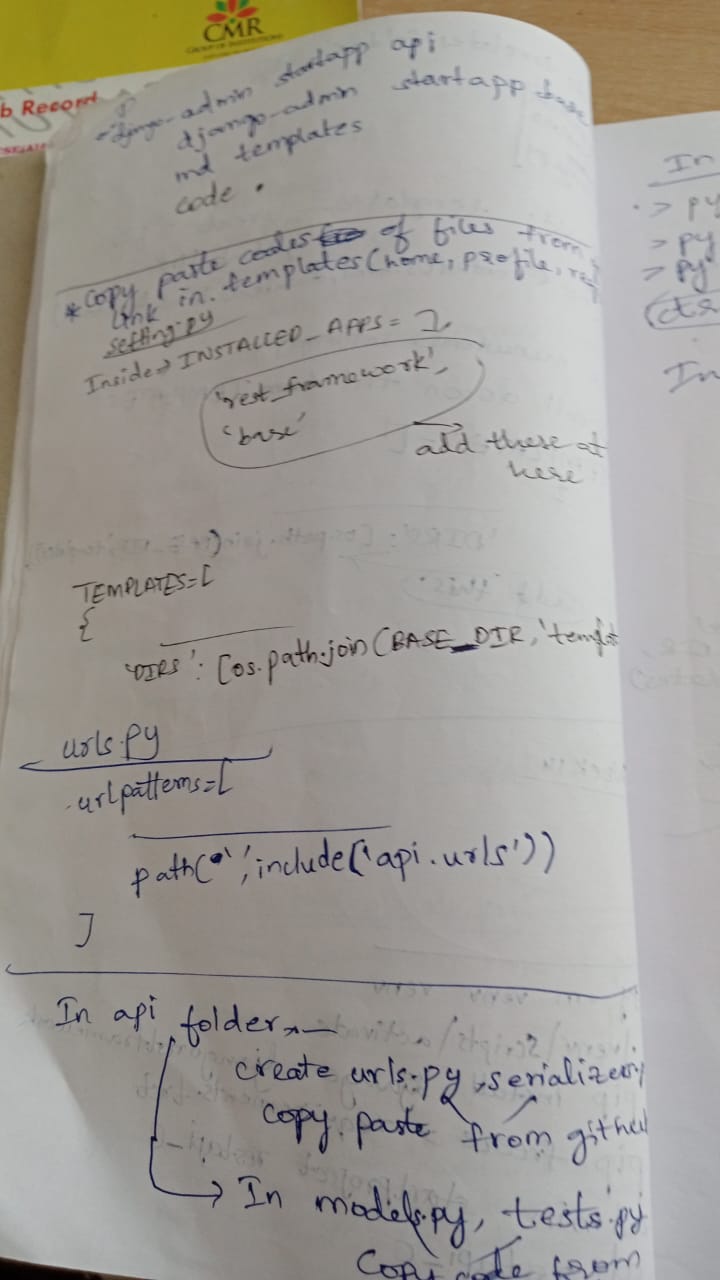 CMR
GROUP OF INSTITUTIONS
b Record
django-admin startapp api
django-admin startapp base
md templates
code .
* copy paste codes of files from
link in. templates (home, profile, reg
setting.py
Inside → INSTALLED_APPS = [
'rest_framework',
'base'
add these at
here
TEMPLATES=[
{
'DIRS': [os.path.join(BASE_DIR, 'templat
urls.py
urlpatterns=[
path('', include('api.urls'))
]
In api folder
create urls.py, serializers
copy paste from githu
→ In models.py, tests.py
Copy code from
In
-> py
> py
> py
In